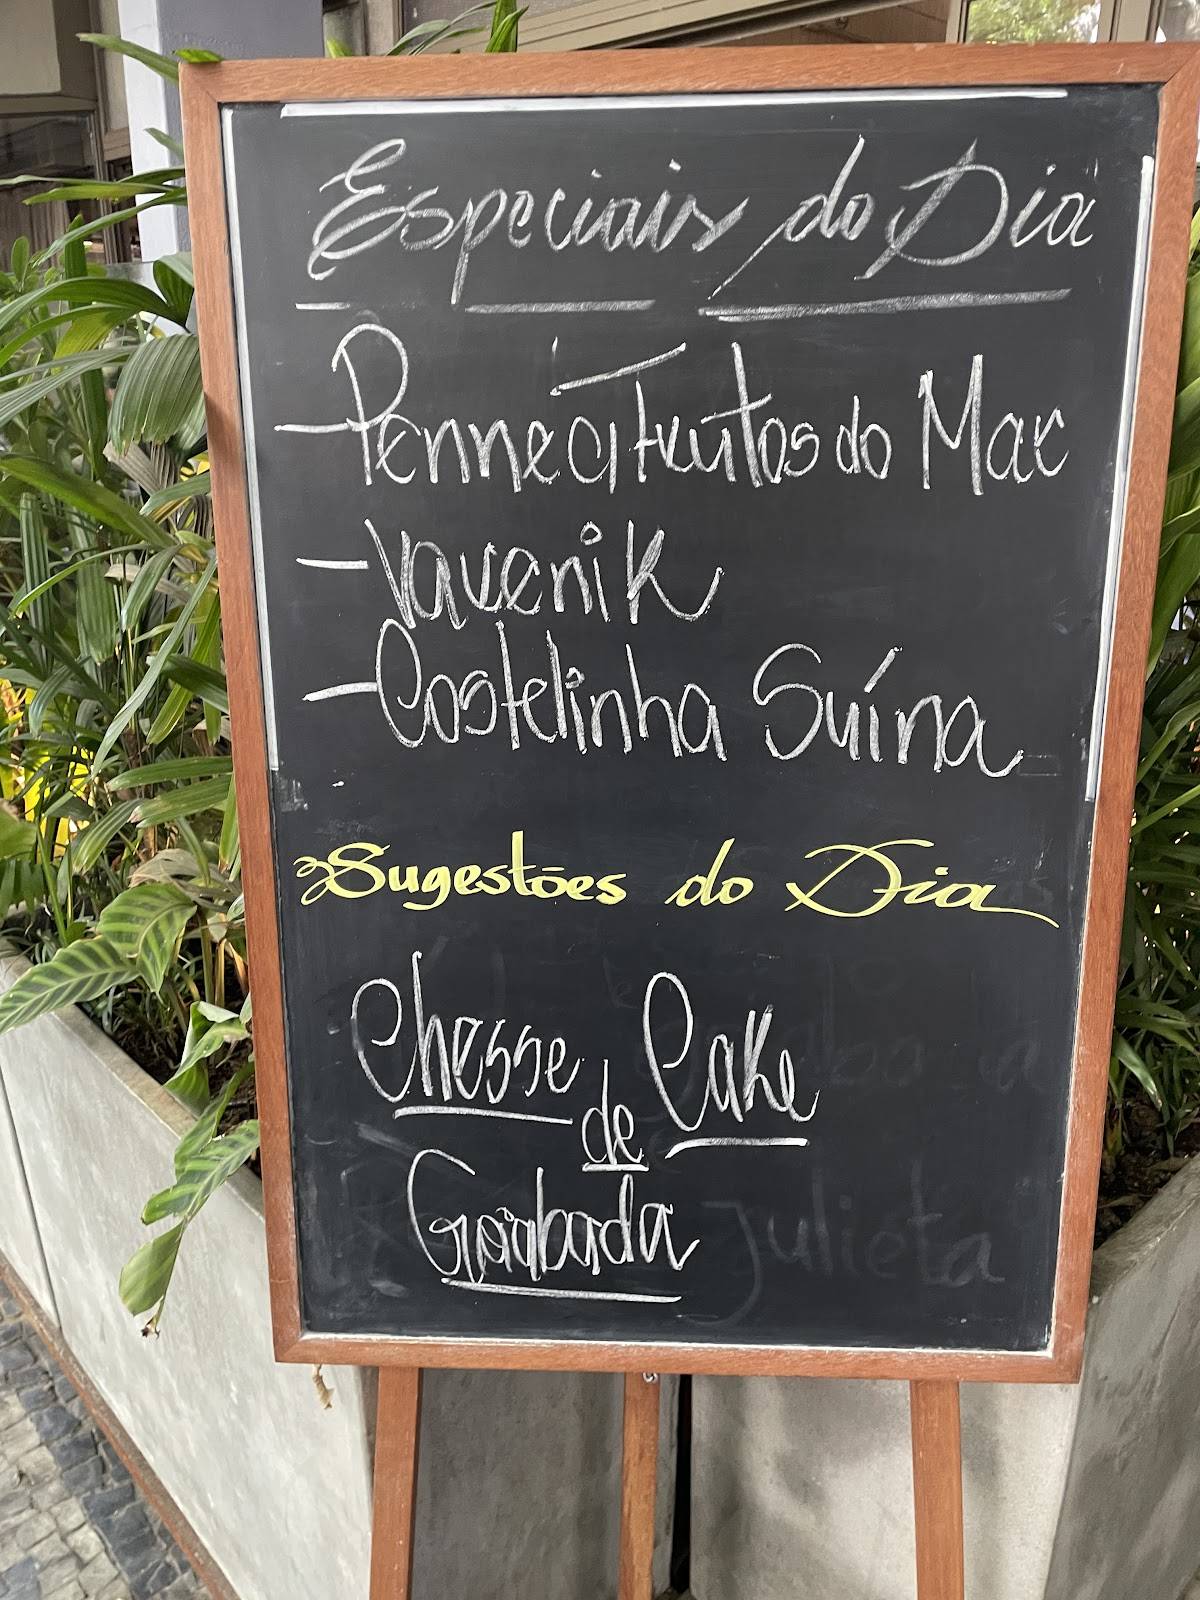 Especiais do Dia
- Penne c/ Frutos do Mar
- Vavenik
- Costelinha Suína
Sugestões do Dia
Chesse Cake
de
Goiabada
Julieta